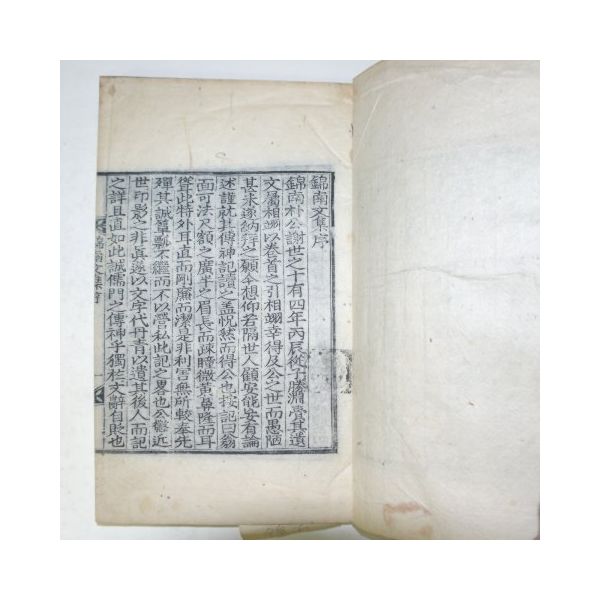 錦南文集序
錦南朴公謝世之十有四年丙辰從子勝淵賫其遺
文屬相翊以卷首之引相翊幸得及公之世而愚陋
甚未遂納行之願今想仰若隔世人顧安能妄有論
述謹就其傳神記讀之盖怳然而得公也按記曰翁
面可法尺額之廣半之眉長而疎瞳微黃鼻隆而耳
聳此特外耳直而剛廉而潔是非利害無所較奉先
殫其誠簞瓢不繼而不以營私此記之男也公鬱近
世印影之非眞遂以文字代丹青以遺其後人而記
之詳且直如此誠儒門之傳神乎獨於文辭自貶也
錦南文集序